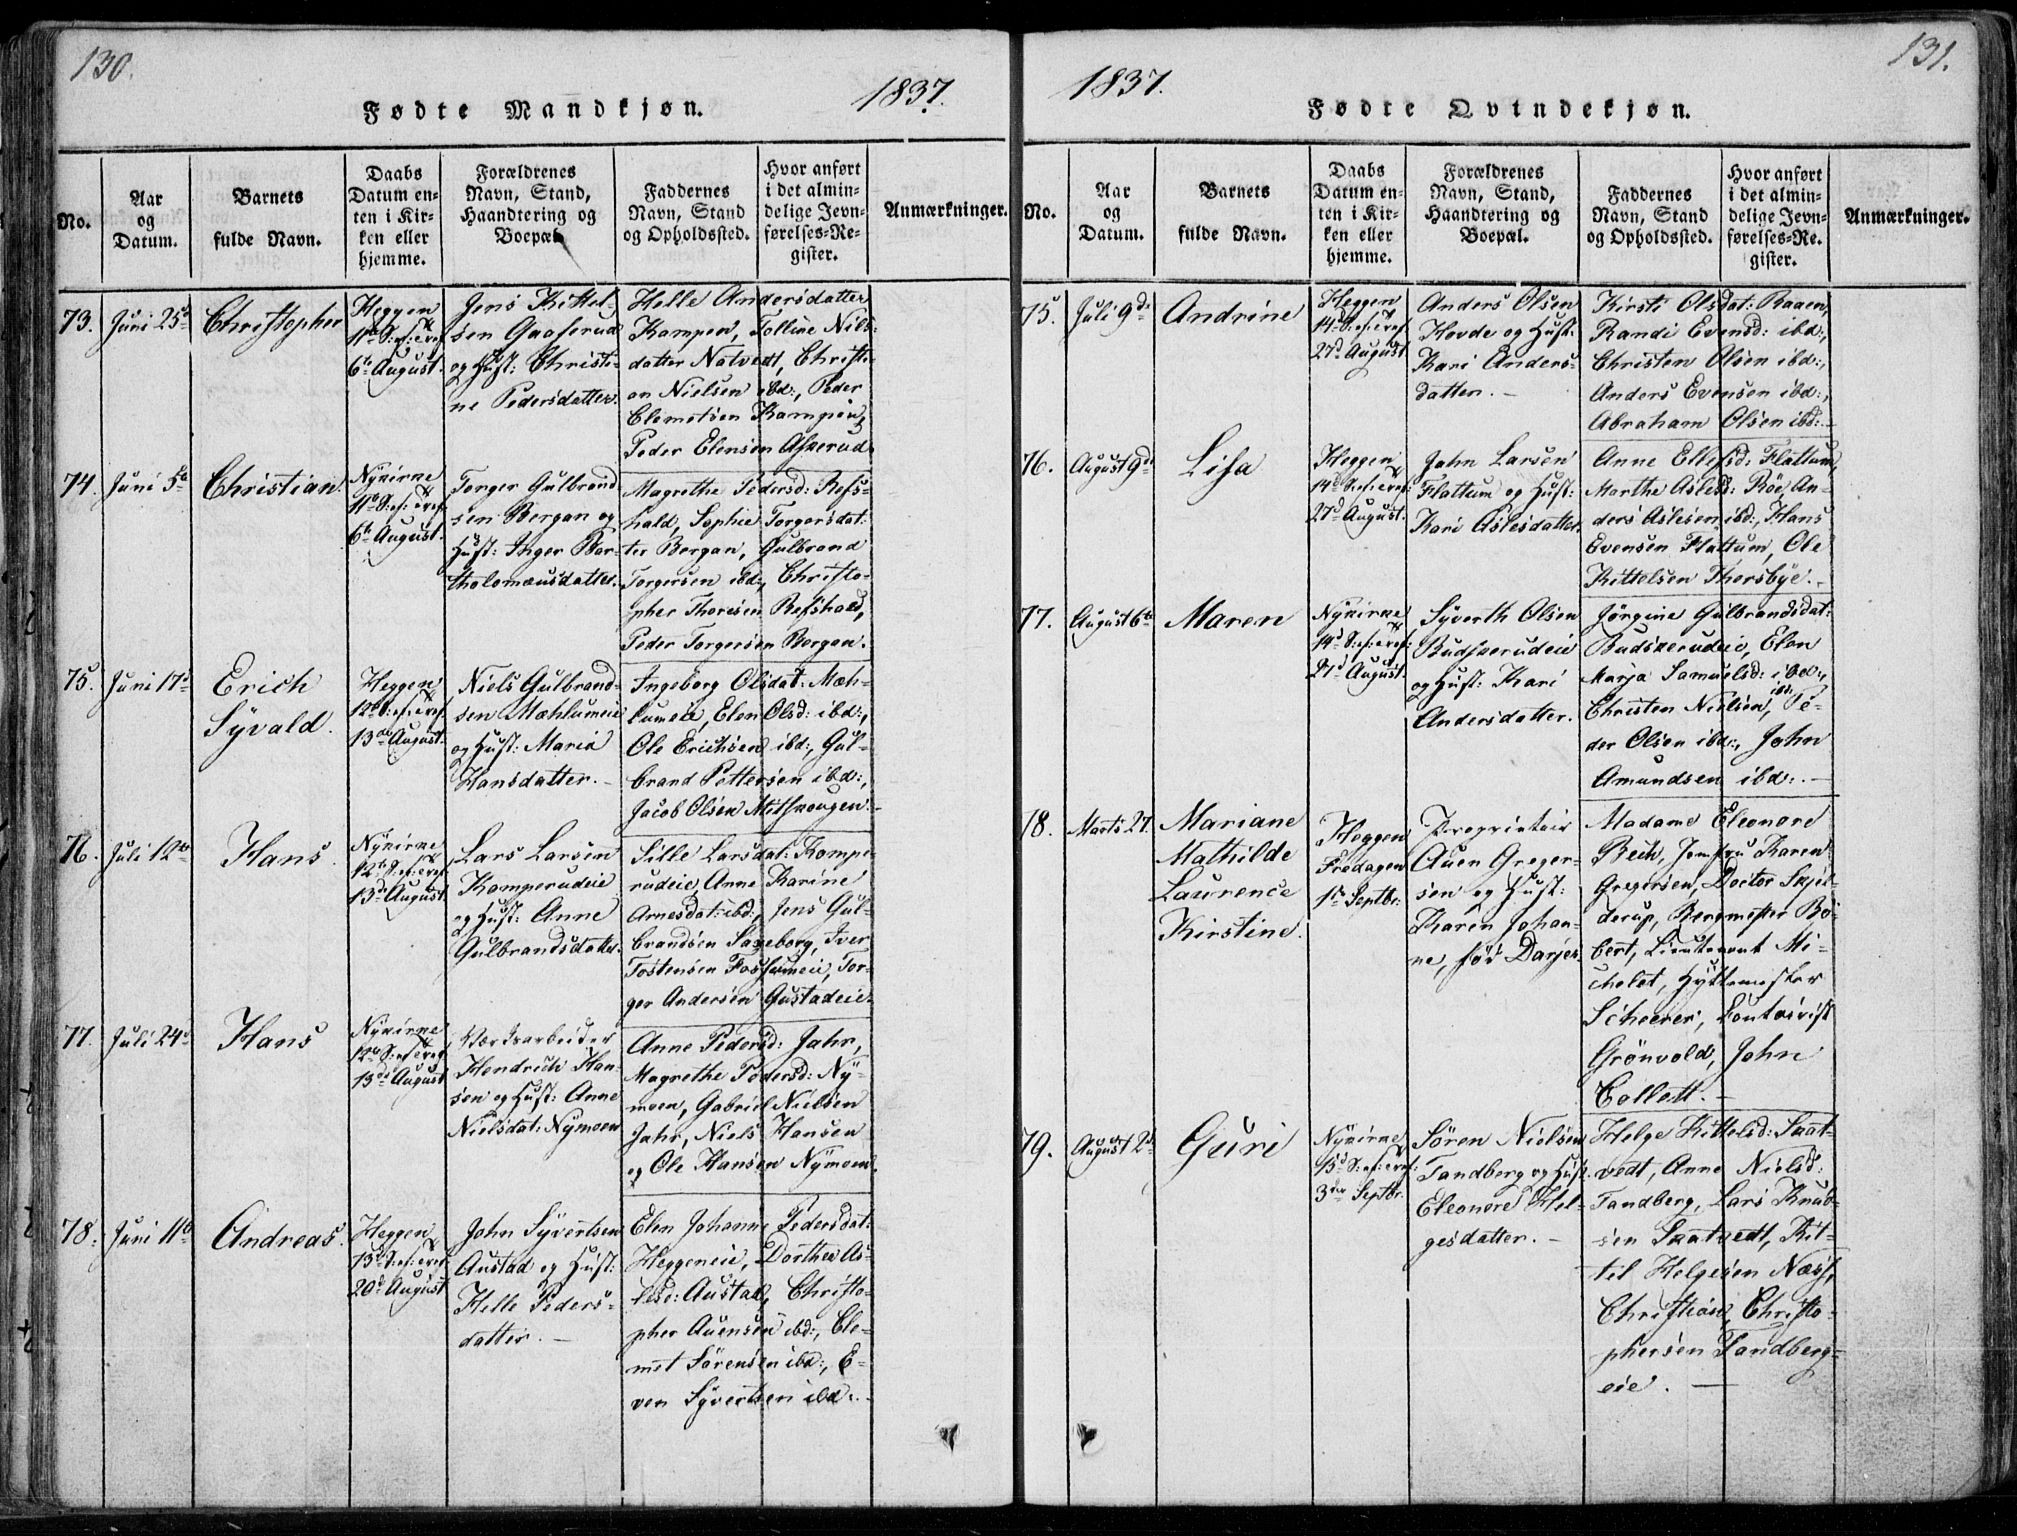 130.
1837.
Fødte Mandkjøn.
No.
Aar
og
Datum.
Barnets
fulde Navn.
Daabs
Datum en-
ten i Kir-
ken eller
hjemme.
Forældrenes
Navn, Stand,
Haandtering og
Boepæl.
Faddernes
Navn, Stand
og Opholdssted.
Hvor anført
i det almin-
delige Jevn-
førelses-Re-
gister.
Anmærkninger.
73.
Juni 25d
Christopher
Heggen
11te S: ef: Tref
6te August.
Jens Kittel
sen Gaaserud
og Hust: Christi-
ne Pedersdatter.
Helle Andersdatter
Kampen, Tolline Niels-
datter Natvedt, Christi-
an Nielsen ibd:, Peder
Clemetsen Kampen,
Peder Elensen Askerud.
74.
Juni 5d
Christian
Nykirke
11te S: ef: Tref
6te August.
Torger Gulbrand
sen Bergan og
Hust: Inger Bar-
tholomæusdatter.
Magrethe Pedersd: Refs-
hald, Sophie Torgersdat-
ter Bergan, Gulbrand
Torgersen ibd:, Christo-
pher Thoresen Refshald,
Peder Torgersen Bergan.
75.
Juni 17d
Erich
Syvald.
Heggen
12te S: ef: Tref
13de August.
Niels Gulbrand-
sen Mæhlumeie
og Hust: Maria
Hansdatter.
Ingeborg Olsdat: Mæh-
lumeie, Elen Olsd: ibd:,
Ole Erichsen ibd:, Gul-
brand Pettersen ibd:,
Jacob Olsen Midtskougen.
76.
Juli 12te
Hans.
Nykirke
12te S: ef: Tref
13de August
Lars Larsen
Kamperudeie
og Hust: Anne
Gulbrandsdatter.
Sille Larsdat: Kampe-
rudeie, Anne Karine
Arnesdat: ibd:, Jens Gul-
brandsen Sageborg, Iver
Tostensen Fossumeie, Tor-
ger Andersen Gustadeie.
77.
Juli 24d
Hans
Nykirke
12te S: ef: Tref
13de August
Værksarbeider
Hendrich Han-
sen og Hust: Anne
Nielsdat: Nymoen
Anne Pedersd: Jahr,
Magrethe Pedersd: Ny-
moen, Gabriel Nielsen
Jahr, Niels Hansen
og Ole Hansen Nymoen.
78.
Juni 11te
Andreas.
Heggen
13de S: ef: Tref
20de August
John Syvertsen
Austad og Hust:
Helle Peders-
datter.
Elen Johanne Pedersdat:
Heggeneie, Dorthea As-
lesd: Austad, Christo-
pher Auensen ibd:, Cle-
met Sørensen ibd:, E-
ven Syvertsen ibd:.
131.
1837.
Fødte Qvindekjøn.
No.
Aar
og
Datum.
Barnets
fulde Navn.
Daabs
Datum en-
ten i Kir-
ken eller
hjemme.
Forældrenes
Navn, Stand,
Haandtering og
Boepæl.
Faddernes
Navn, Stand
og Opholdssted.
Hvor anført
i det almin-
delige Jevn-
førelses-Re-
gister.
Anmærkninger.
75.
Juli 9de
Andrine
Heggen
14d S: ef: Tref
27d August
Anders Olsen
Hovde og Hust:
Kari Anders-
datter.
Kirsti Olsdat: Raaen,
Randi Evensd: ibd:,
Christen Olsen ibd:,
Anders Evensen ibd:,
Abraham Olsen ibd:.
76.
August 9de
Lisa
Heggen
14d S: ef: Tref:
27d August.
John Larsen
Flattum og Hust:
Kari Aslesdatter.
Anne Ellefsd: Flattum,
Marthe Aslesd: Røe, An-
ders Aslesen ibd:, Hans
Evensen Flattum, Ole
Kittelsen Thorsbye.
77.
August 6te
Maren
Nykirke
14d S: ef: Tref:
27d August.
Syverth Olsen
Budskerudeie
og Hust: Kari
Andersdatter.
Jørgine Gulbrandsdat:
Budskerudeie, Elen
Marja Samuelsd: ibd:,
Christen Nielsen ibd:, Pe-
der Olsen ibd:, John
Amundsen ibd:.
78.
Marts 27.
Mariane
Mathilde
Laurence
Kirstine.
Heggen
Fredagen
1ste Septbr:
Proprietair
Auen Greger-
sen og Hust:
Karen Johan-
ne, fød Darjes.
Madame Eleonore
Bech, Jomfru Karen
Gregersen, Doctor Skjel-
derup, Bergmester Bø-
bert, Lieutenant Mi-
chelet, Hyttemester
Scheerer, Contoirist
Grönvold, John
Collett.
79.
August 2d
Guri
Nykirke
15d S: ef: Tref:
3die Septbr.
Søren Nielsen
Tandberg og Hust.
Eleonore Hel-
gesdatter.
Helge Kittelsd: Saat-
vedt, Anne Nielsd:
Tandberg, Lars Knud-
sen Saatvedt, Kit-
tel Helgesen Næss,
Christian Christo-
phersen Tandberg-
eie.